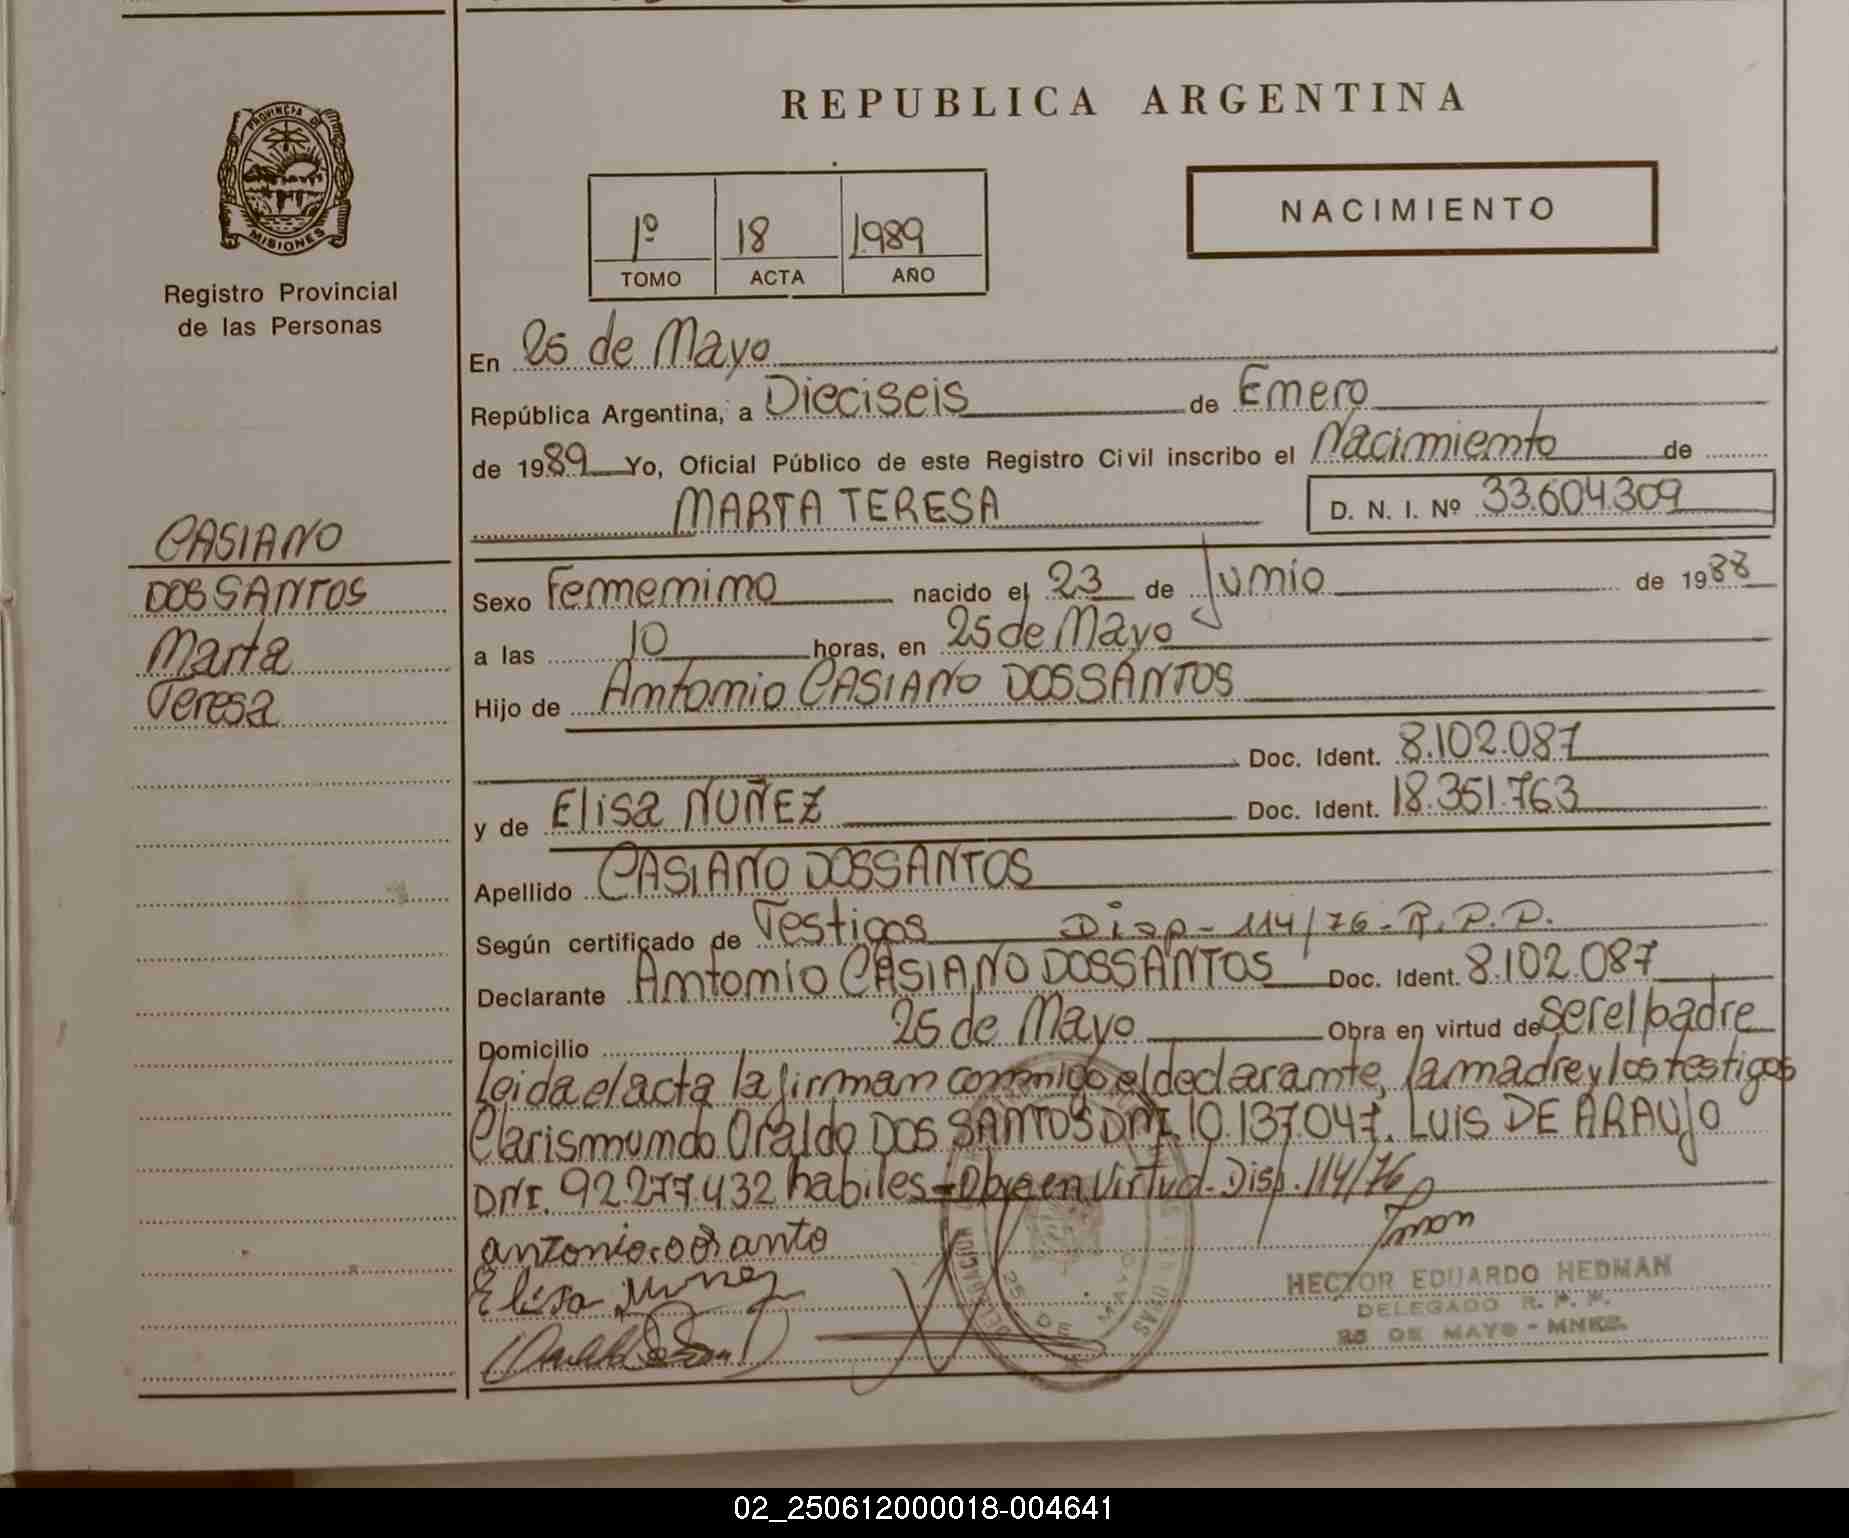 REPUBLICA ARGENTINA
PROVINCIA DE
MISIONES
Registro Provincial
de las Personas
1º 18 1.989
TOMO ACTA AÑO
NACIMIENTO
En 25 de Mayo
República Argentina, a Dieciseis de Enero
de 1989 Yo, Oficial Público de este Registro Civil inscribo el Nacimiento de
MARTA TERESA D. N. I. Nº 33.604.309
CASIANO
DOS SANTOS
Marta
Teresa
Sexo Femenino nacido el 23 de Junio de 1988
a las 10 horas, en 25 de Mayo
Hijo de Antonio CASIANO DOS SANTOS
Doc. Ident. 8.102.087
y de Elisa NUÑEZ Doc. Ident. 18.351.763
Apellido CASIANO DOS SANTOS
Según certificado de Testigos Disp- 114/76- R.P.P.
Declarante Antonio CASIANO DOS SANTOS Doc. Ident. 8.102.087
Domicilio 25 de Mayo Obra en virtud de ser el padre
Leida el acta la firman conmigo el declarante, la madre y los testigos
Clarismundo Oraldo DOS SANTOS DNI. 10.137.047. LUIS DE ARAUJO
DNI. 92.277.432 habiles - Obra en Virtud. Disp. 114/76
Elisa Nuñez
HECTOR EDUARDO HEDMAN
DELEGADO R. P. P.
25 DE MAYO - MNES.
25 DE MAYO
02_250612000018-004641